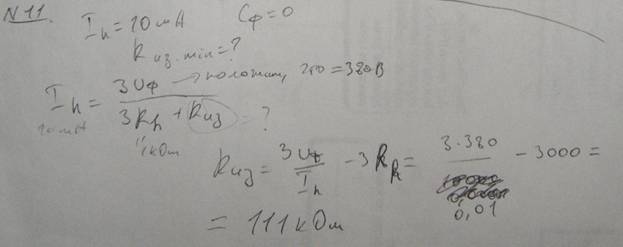 N 11.
I_h = 10 mA C_ф = 0
R из. min = ?
I_h = 3 U_ф / (3 R_h + R из) = ?
→ положим, что = 380 В
10 mA
1 кОм
R из = 3 U_ф / I_h - 3 R_h = 3·380 / 0,01 - 3000 =
= 111 кОм